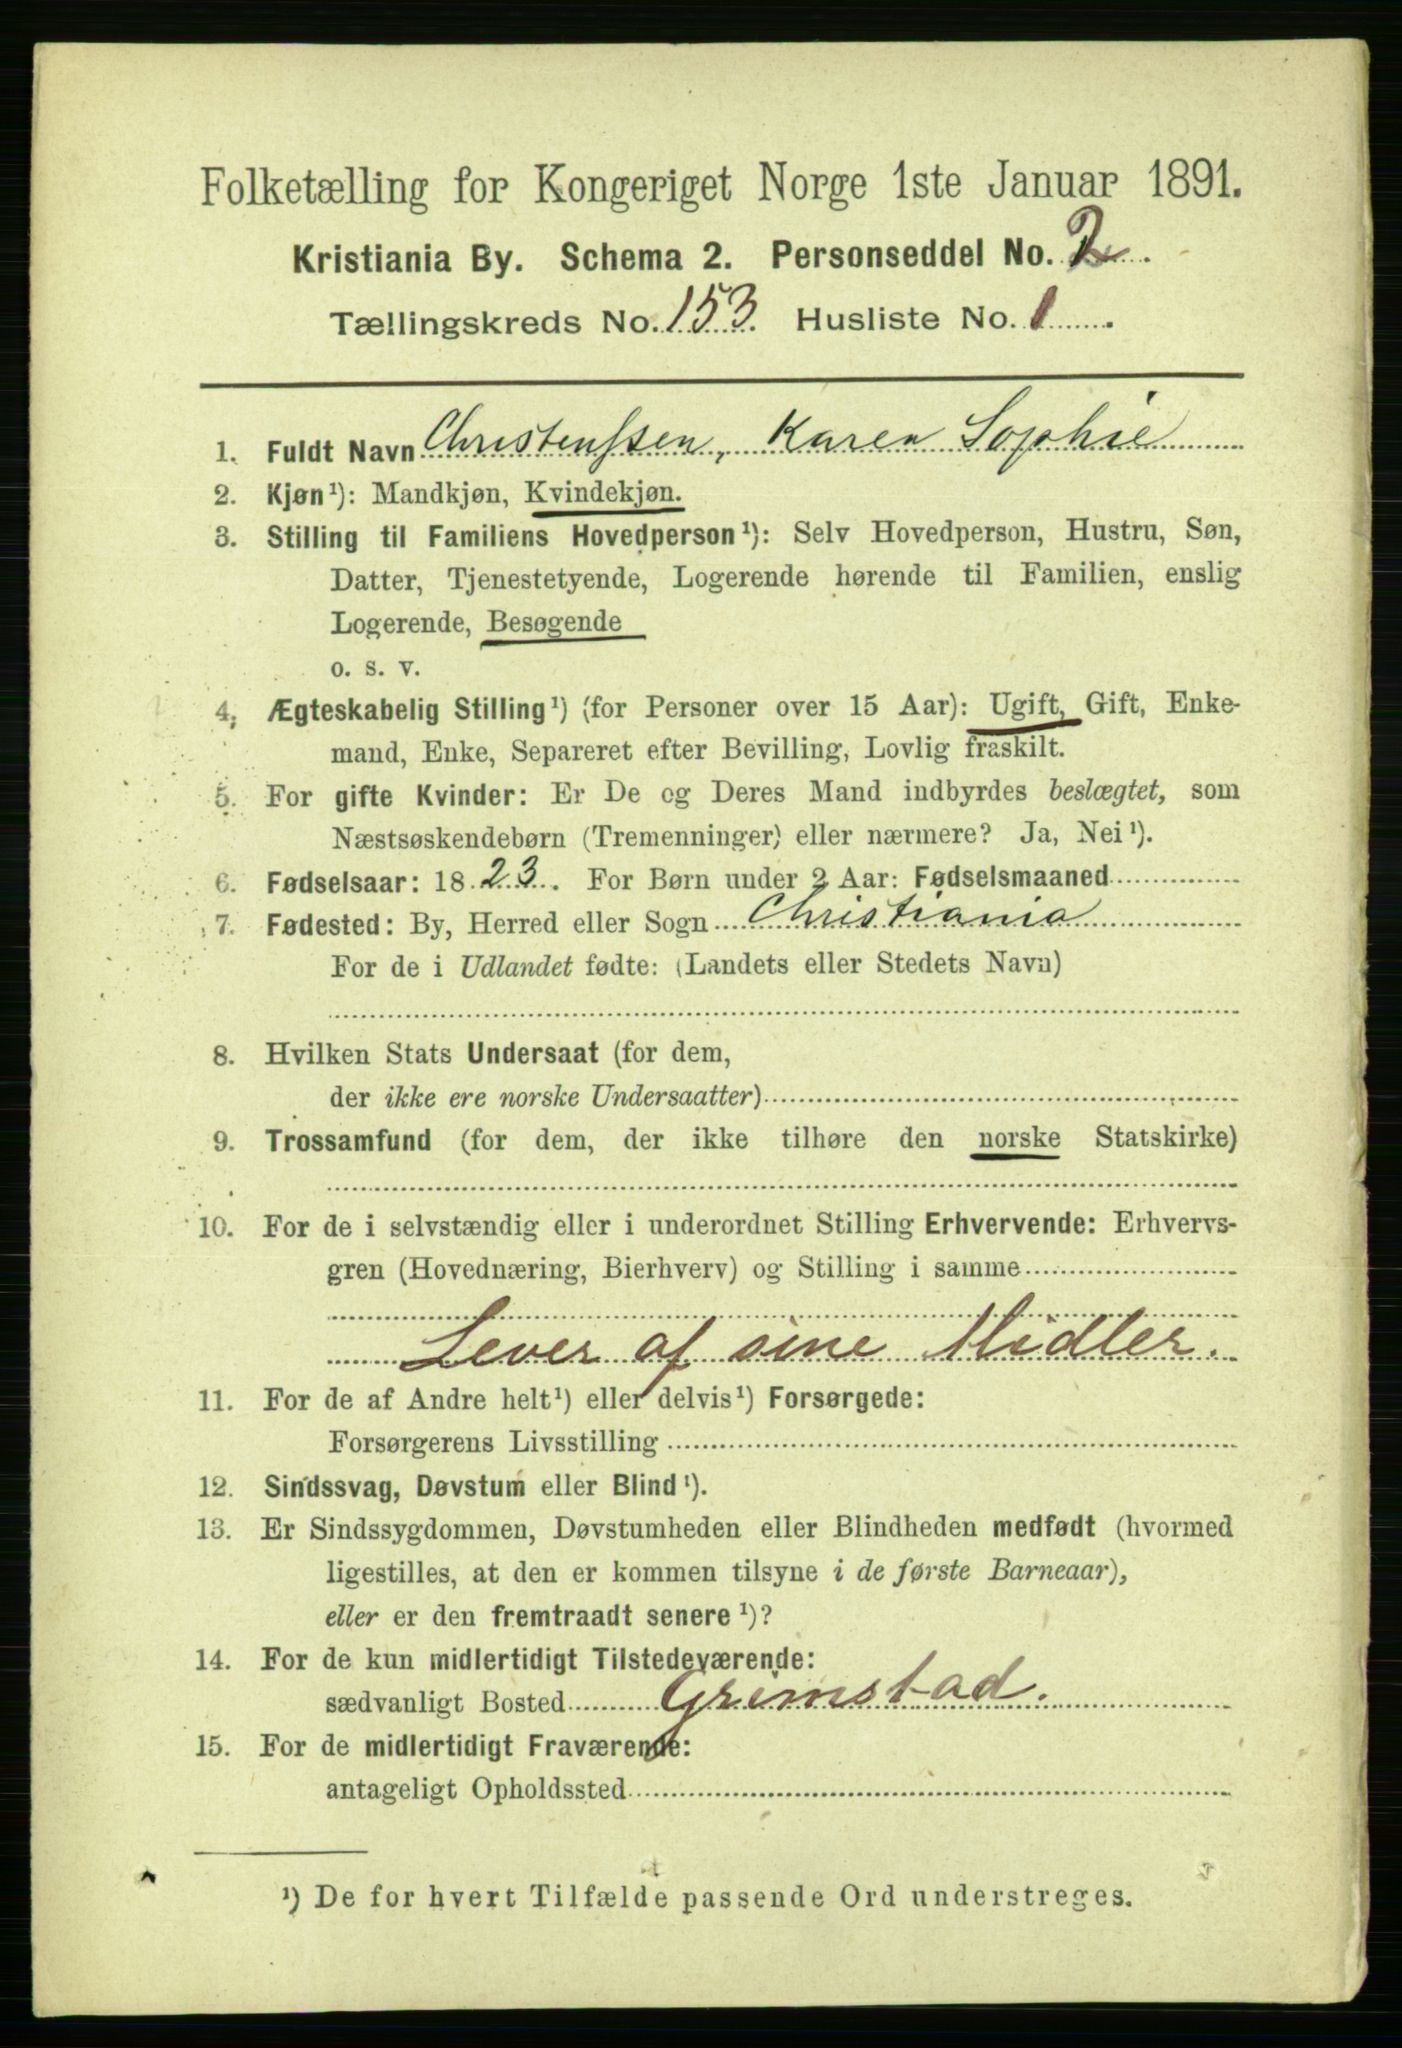 Folketælling for Kongeriget Norge 1ste Januar 1891.
Kristiania By. Schema 2. Personseddel No. 2.
Tællingskreds No. 153. Husliste No. 1.
1. Fuldt Navn Christenssen, Karen Sophie
2. Kjøn¹): Mandkjøn, Kvindekjøn.
3. Stilling til Familiens Hovedperson¹): Selv Hovedperson, Hustru, Søn,
Datter, Tjenestetyende, Logerende hørende til Familien, enslig
Logerende, Besøgende
o. s. v.
4. Ægteskabelig Stilling¹) (for Personer over 15 Aar): Ugift, Gift, Enke-
mand, Enke, Separeret efter Bevilling, Lovlig fraskilt.
5. For gifte Kvinder: Er De og Deres Mand indbyrdes beslægtet, som
Næstsøskendebørn (Tremenninger) eller nærmere? Ja, Nei¹).
6. Fødselsaar: 1823. For Børn under 2 Aar: Fødselsmaaned
7. Fødested: By, Herred eller Sogn Christiania
For de i Udlandet fødte: (Landets eller Stedets Navn)
8. Hvilken Stats Undersaat (for dem,
der ikke ere norske Undersaatter)
9. Trossamfund (for dem, der ikke tilhøre den norske Statskirke)
10. For de i selvstændig eller i underordnet Stilling Erhvervende: Erhvervs-
gren (Hovednæring, Bierhverv) og Stilling i samme
Lever af sine Midler.
11. For de af Andre helt¹) eller delvis¹) Forsørgede:
Forsørgerens Livsstilling
12. Sindssvag, Døvstum eller Blind¹).
13. Er Sindssygdommen, Døvstumheden eller Blindheden medfødt (hvormed
ligestilles, at den er kommen tilsyne i de første Barneaar),
eller er den fremtraadt senere¹)?
14. For de kun midlertidigt Tilstedeværende:
sædvanligt Bosted Grimstad.
15. For de midlertidigt Fraværende:
antageligt Opholdssted
¹) De for hvert Tilfælde passende Ord understreges.